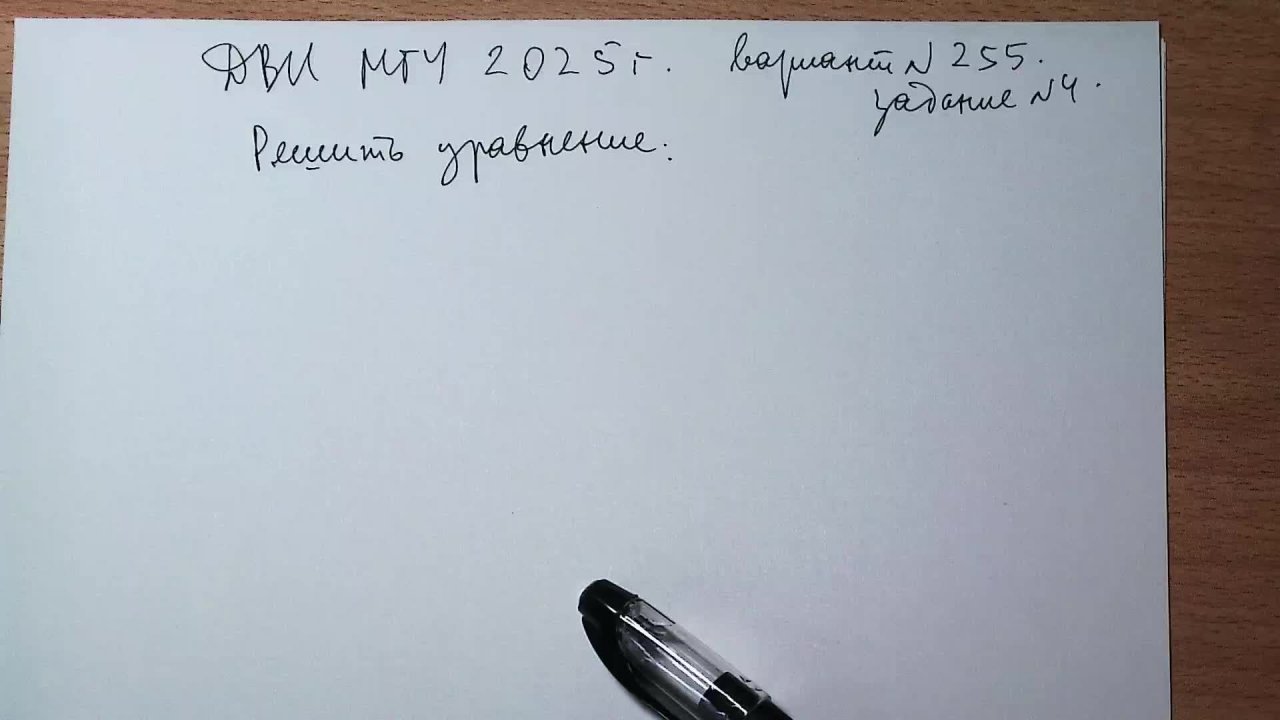 ДВИ МГУ 2025г. вариант N 255.
задание N4.
Решить уравнение: